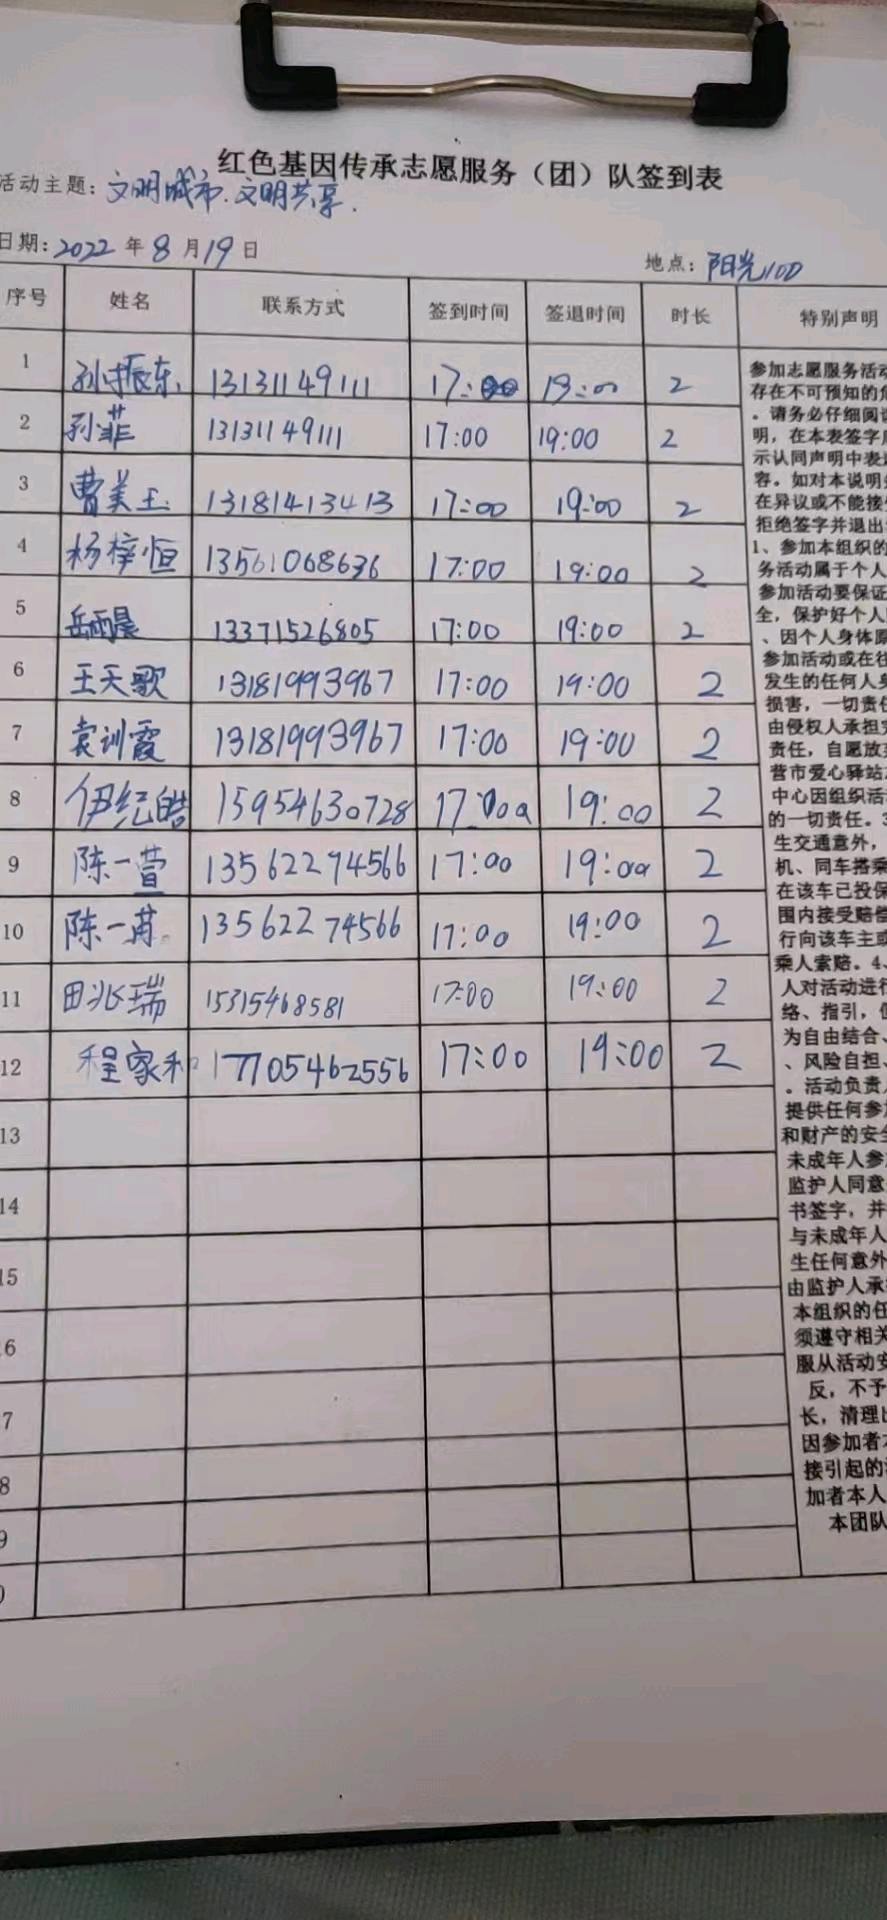 红色基因传承志愿服务（团）队签到表
活动主题：文明城市.文明共享.
日期：2022年8月19日
地点：阳光100
序号 姓名 联系方式 签到时间 签退时间 时长 特别声明
1 孙振东 13131149111 17:00 19:00 2
2 孙菲 13131149111 17:00 19:00 2
3 曹美玉 13181413413 17:00 19:00 2
4 杨梓恒 13561068636 17:00 19:00 2
5 岳雨晨 13371526805 17:00 19:00 2
6 王天歌 13181993967 17:00 19:00 2
7 袁训霞 13181993967 17:00 19:00 2
8 伊纪皓 15954630728 17:00 19:00 2
9 陈一萱 13562274566 17:00 19:00 2
10 陈一 13562274566 17:00 19:00 2
11 田兆瑞 15315468581 17:00 19:00 2
12 程家和 17705462556 17:00 19:00 2
13
14
15
6
7
8
9
0
参加志愿服务活动
存在不可预知的危
。请务必仔细阅读
明，在本表签字后
示认同声明中表述
容。如对本说明
在异议或不能接受
拒绝签字并退出
1、参加本组织的
务活动属于个人
参加活动要保证
全，保护好个人
、因个人身体原
参加活动或在往
发生的任何人身
损害，一切责任
由侵权人承担
责任，自愿放弃
营市爱心驿站
中心因组织活
的一切责任。3
生交通意外，
机、同车搭乘
在该车已投保
围内接受赔偿
行向该车主或
乘人索赔。4、
人对活动进行
络、指引，但
为自由结合、
、风险自担、
。活动负责人
提供任何参加
和财产的安全
未成年人参加
监护人同意
书签字，并
与未成年人
生任何意外
由监护人承担
本组织的任
须遵守相关
服从活动安
反，不予
长，清理出
因参加者本
接引起的
加者本人
本团队